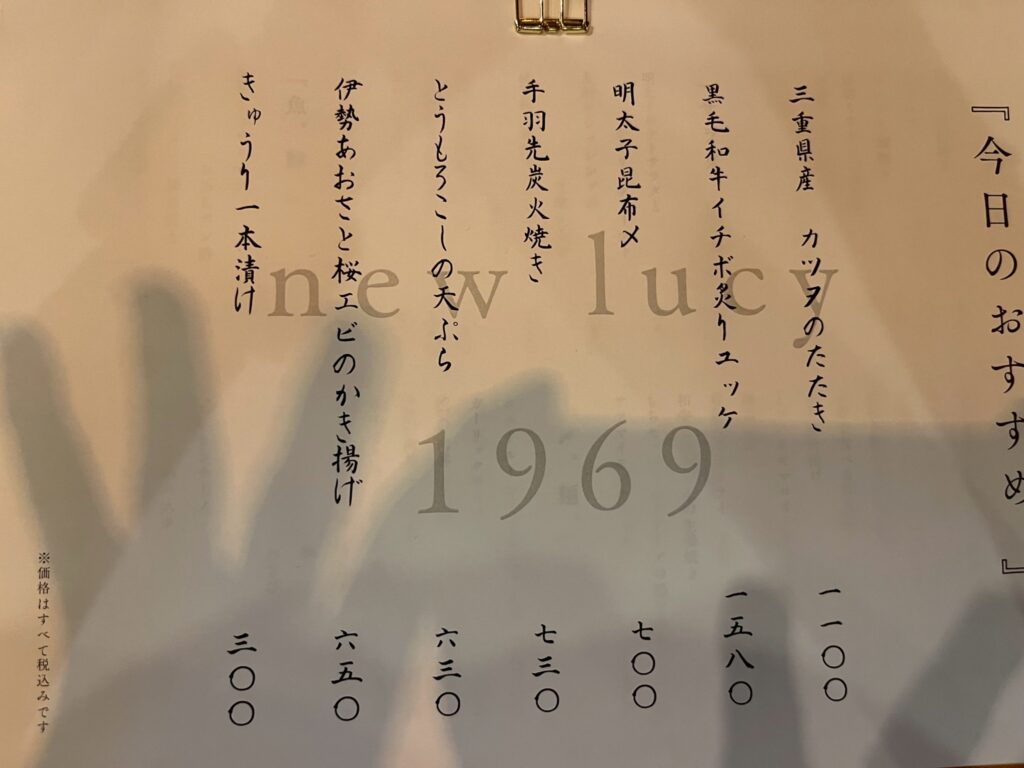 『今日のおすすめ』
三重県産 カツヲのたたき 一一〇〇
黒毛和牛イチボ炙りユッケ 一五八〇
明太子昆布〆 七〇〇
手羽先炭火焼き 七三〇
とうもろこしの天ぷら 六三〇
伊勢あおさと桜エビのかき揚げ 六五〇
きゅうり一本漬け 三〇〇
※価格はすべて税込みです
new lucy
1969